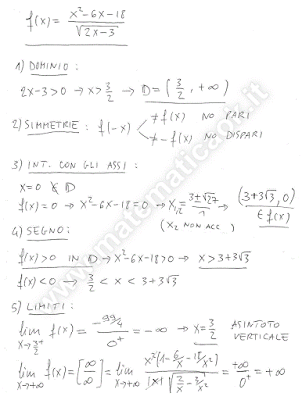 f(x) = x²-6x-18 / √(2x-3)
1) DOMINIO :
2x-3>0 → x>3/2 → D = (3/2, +∞)
2) SIMMETRIE : f(-x) < ≠ f(x) NO PARI
≠ -f(x) NO DISPARI
3) INT. CON GLI ASSI :
x=0 ∉ D
f(x)=0 → x²-6x-18=0 → x₁,₂ = 3±√27 / 1 → (3+3√3, 0) ∈ f(x)
(x₂ NON ACC.)
4) SEGNO :
f(x)>0 in D → x²-6x-18>0 → x>3+3√3
f(x)<0 → 3/2 < x < 3+3√3
5) LIMITI :
lim x→3/2⁺ f(x) = -99/4 / 0⁺ = -∞ → x=3/2 ASINTOTO VERTICALE
lim x→+∞ f(x) = [∞/∞] = lim x→+∞ x²(1-6/x-18/x²) / |x|√(2/x-3/x²) = +∞/0⁺ = +∞
www.matematicaoz.it